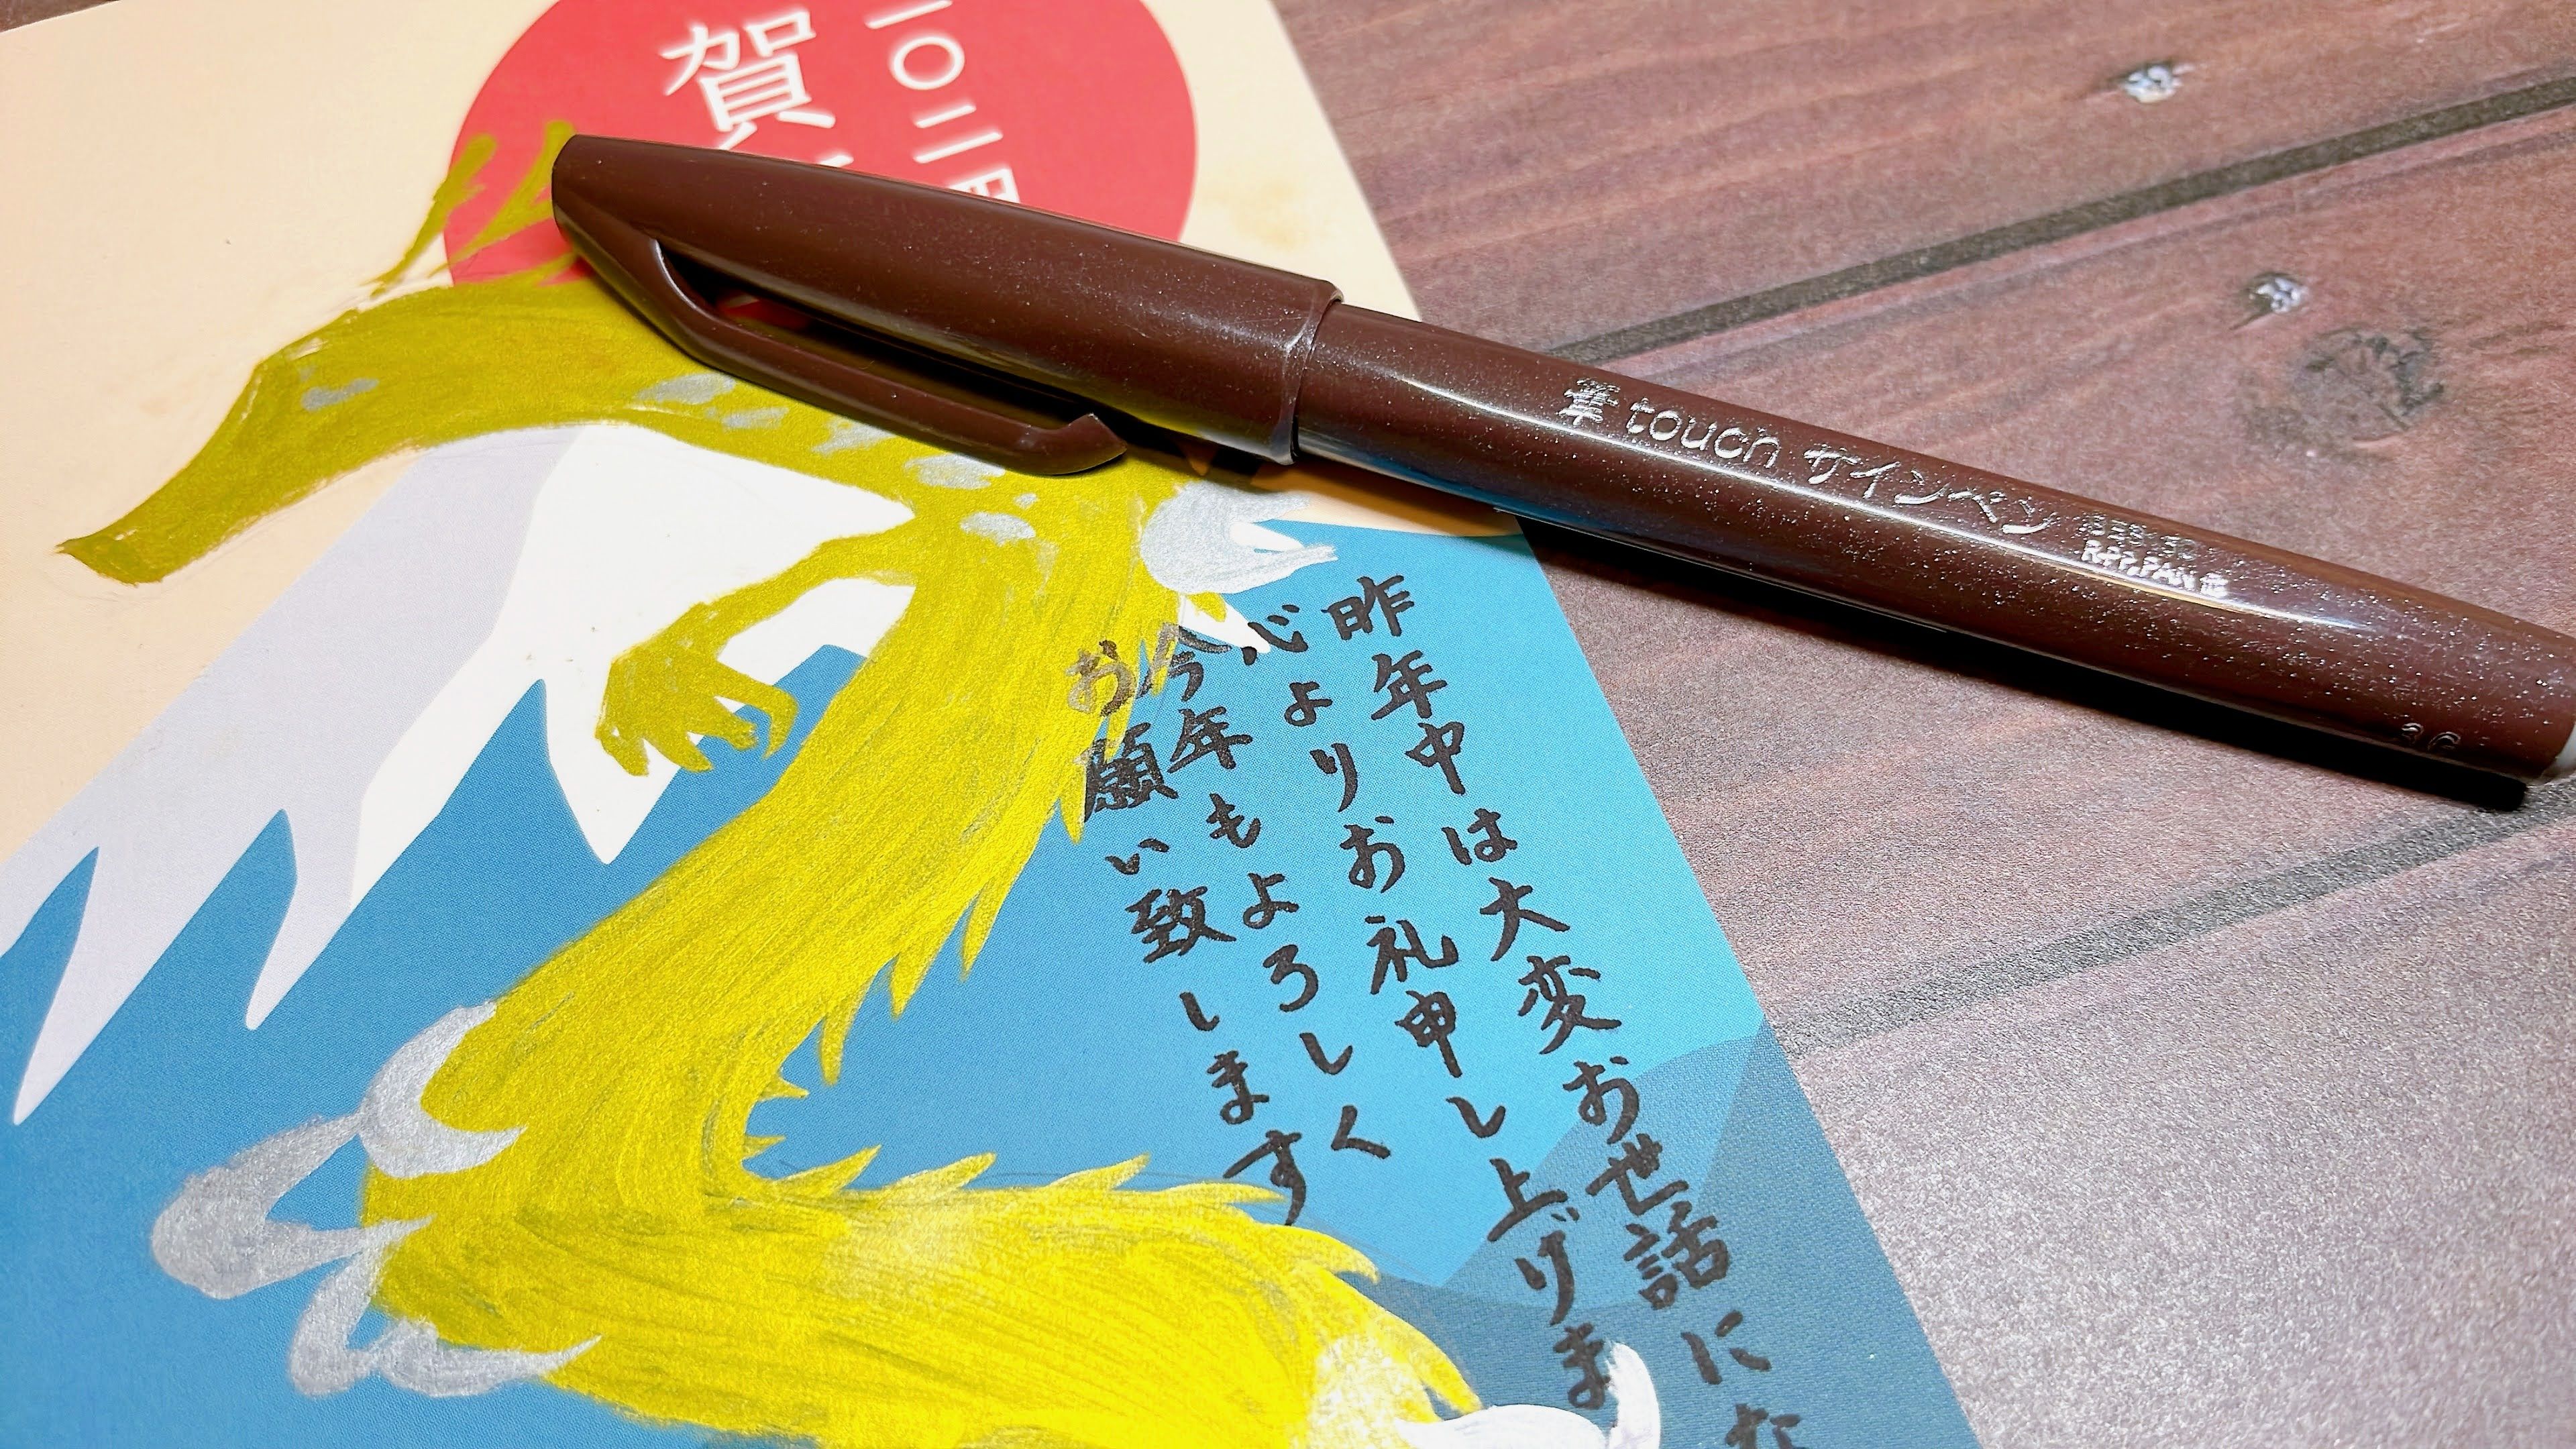 二〇二四
賀
筆touchサインペン
昨年中は大変お世話にな
心よりお礼申し上げま
今年もよろしく
お願い致します